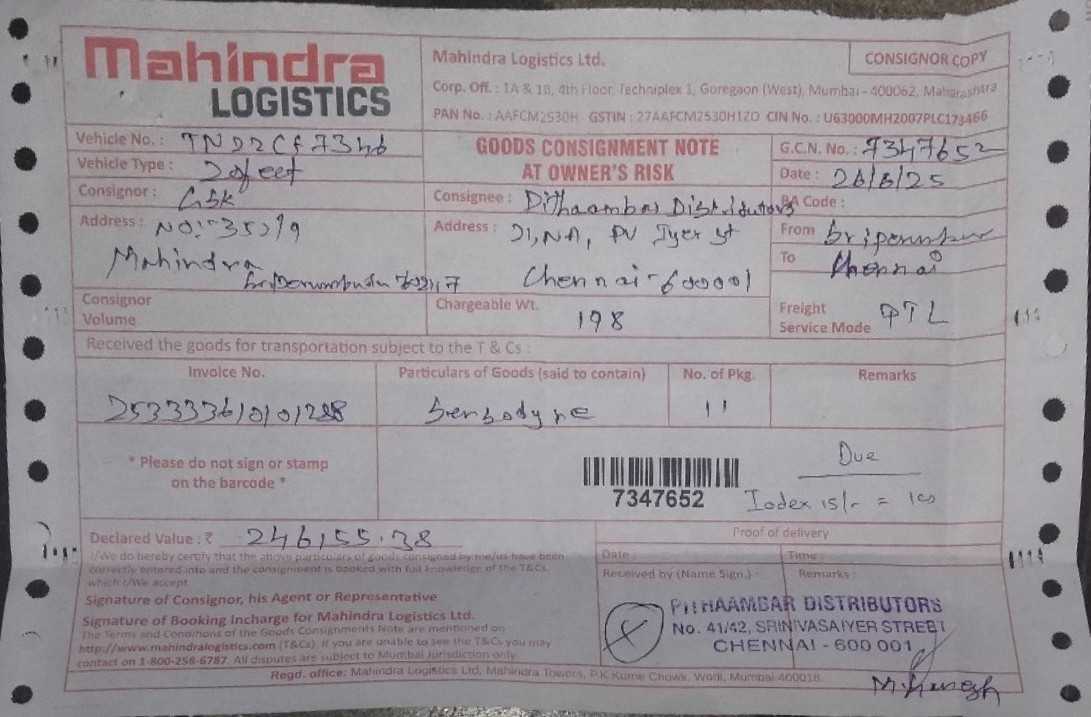 Mahindra
LOGISTICS
Mahindra Logistics Ltd.
CONSIGNOR COPY
Corp. Off. : 1A & 1B, 4th Floor, Techniplex 1, Goregaon (West), Mumbai - 400062, Maharashtra
PAN No. : AAFCM2530H GSTIN : 27AAFCM2530H1ZO CIN No. : U63000MH2007PLC173466
Vehicle No. : TN22CF7346
Vehicle Type : 20feet
GOODS CONSIGNMENT NOTE
AT OWNER'S RISK
G.C.N. No. : 7347652
Date : 26/6/25
Consignor : Gsk
Consignee : Pithaambar Distributors
BA Code :
Address : NO:-35219
Mahindra
Address : 21, NA, PV Iyer st
Chennai-600001
From Sriperumbur
To Chennai
Consignor
Volume
Chargeable Wt.
198
Freight
Service Mode PTL
Received the goods for transportation subject to the T & Cs :
Invoice No. Particulars of Goods (said to contain) No. of Pkg. Remarks
253333610101288 Sensodyne 11
* Please do not sign or stamp
on the barcode *
7347652
Due
Iodex 15/-
Declared Value : ₹ 246155.38
I/We do hereby certify that the above particulars of goods consigned by me/us have been
correctly entered into and the consignment is booked with full knowledge of the T&Cs,
which I/We accept.
Signature of Consignor, his Agent or Representative
Signature of Booking Incharge for Mahindra Logistics Ltd.
The Terms and Conditions of the Goods Consignments Note are mentioned on
http://www.mahindralogistics.com (T&Cs). If you are unable to see the T&Cs you may
contact on 1-800-258-6787. All disputes are subject to Mumbai Jurisdiction only.
Proof of delivery
Date : Time :
Received by (Name Sign.) : Remarks :
PITHAAMBAR DISTRIBUTORS
No. 41/42, SRINIVASAIYER STREET
CHENNAI - 600 001
Regd. office: Mahindra Logistics Ltd, Mahindra Towers, P.K Kurne Chowk, Worli, Mumbai-400018.